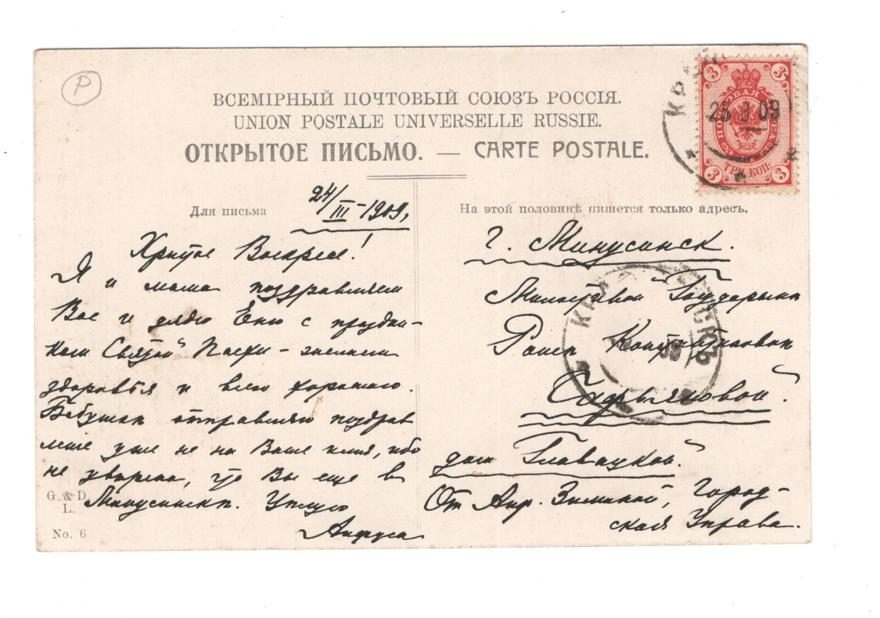 Р
ВСЕМІРНЫЙ ПОЧТОВЫЙ СОЮЗЪ РОССІЯ.
UNION POSTALE UNIVERSELLE RUSSIE.
ОТКРЫТОЕ ПИСЬМО. — CARTE POSTALE.
3 3
ПОЧТОВАЯ МАРКА
25 3 09
ТРИ КОП.
3 3
Для письма
24/III–1909,
Христос Воскресе!
Я и мама поздравляем
Вас и дядю Еню с праздни-
ком Святой Пасхи – желаем
здоровья и всего хорошего.
Бабушка отправляю поздрав
ление уже не на Ваше имя, ибо
не уверена, что Вы еще в
Минусинске. Целую
На этой половинѣ пишется только адресъ.
г. Минусинск.
Милостивой Государыне
Раисе Константиновой
дом Главацкой.
От Анр. Зиминой, Город-
ская Управа.
КРА СКЪ
09
G. & D.
L.
No. 6